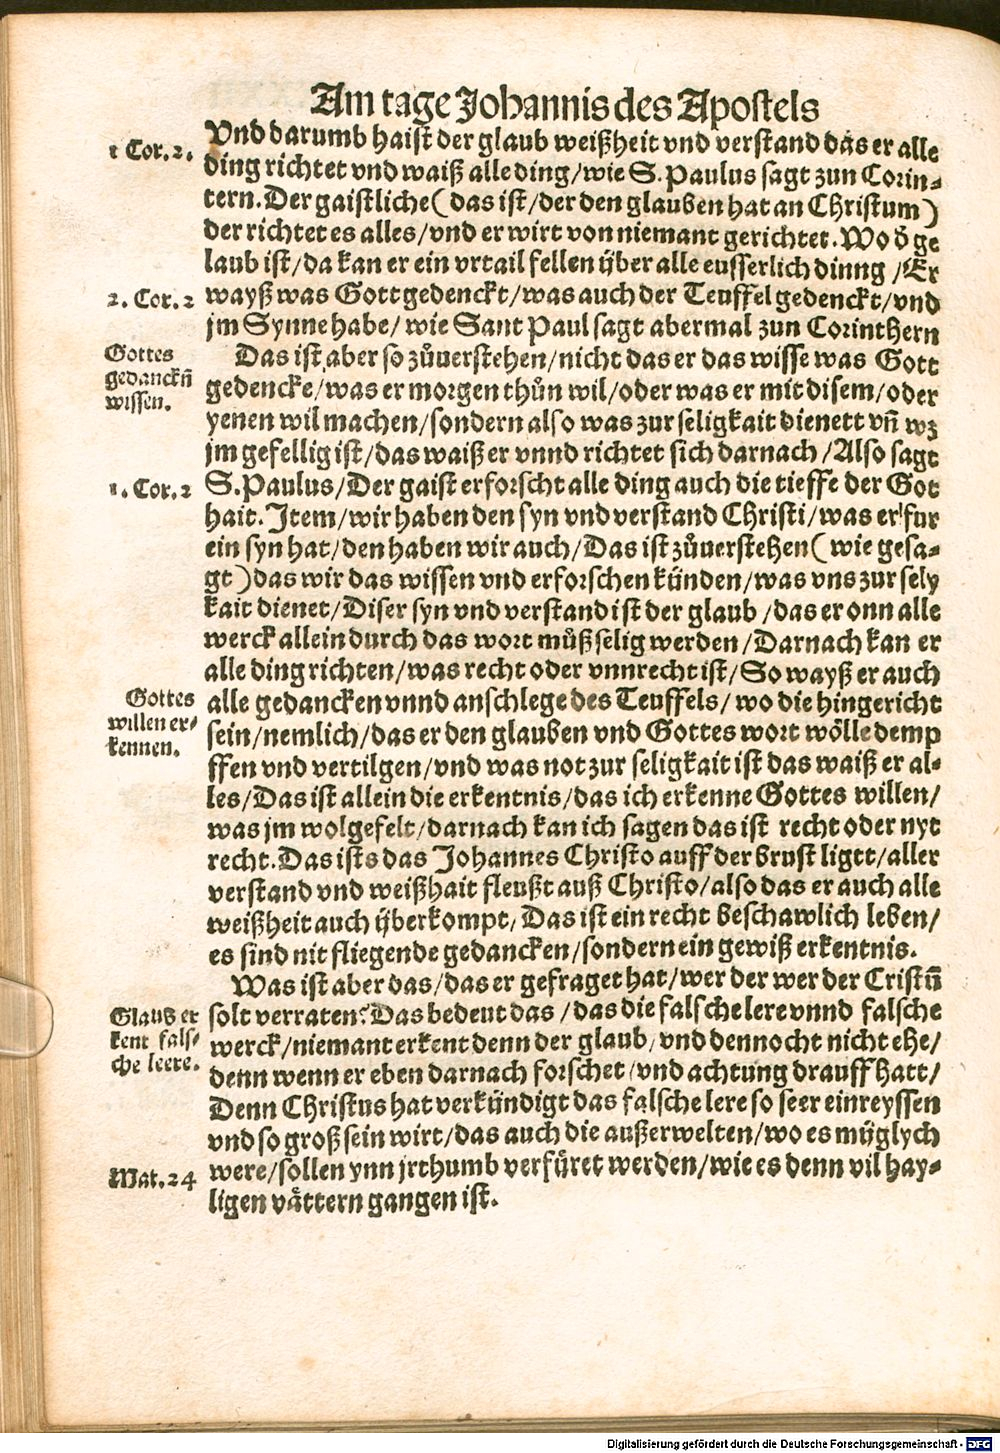 Am tage Johannis des Apostels
1 Cor. 2.
Vnd darumb haist der glaub weißheit vnd verstand das er alle
ding richtet vnd waiß alle ding/wie S. Paulus sagt zun Corin-
tern. Der gaistliche (das ist/der den glauben hat an Christum)
der richtet es alles/vnd er wirt von niemant gerichtet. Wo d̕ ge
laub ist/da kan er ein vrtail fellen ÿber alle eusserlich dinng /Er
2. Cor. 2
wayß was Gott gedenckt/was auch der Teuffel gedenckt/vnd
jm Synne habe/ wie Sant Paul sagt abermal zun Corinthern
Gottes
gedanckñ
wissen.
Das ist aber so zůuerstehen/nicht das er das wisse was Gott
gedencke/was er morgen thůn wil/oder was er mit disem/oder
yenen wil machen/sondern also was zur seligkait dienett vñ wz
jm gefellig ist/das waiß er vnnd richtet sich darnach/Also sagt
1. Cor. 2
S. Paulus/Der gaist erforscht alle ding auch die tieffe der Got
hait. Item/wir haben den syn vnd verstand Christi/was er fur
ein syn hat/den haben wir auch/Das ist zůuerstehen (wie gesa-
gt) das wir das wissen vnd erforschen künden/was vns zur sely
kait dienet/Diser syn vnd verstand ist der glaub/das er onn alle
werck allein durch das wort můß selig werden/Darnach kan er
alle ding richten/was recht oder vnnrecht ist/So wayß er auch
Gottes
willen er-
kennen.
alle gedancken vnnd anschlege des Teuffels/ wo die hingericht
sein/nemlich/das er den glauben vnd Gottes wort wölle demp
ffen vnd vertilgen/vnd was not zur seligkait ist das waiß er al-
les/Das ist allein die erkentnis/das ich erkenne Gottes willen/
was jm wolgefelt/darnach kan ich sagen das ist recht oder nyt
recht. Das ists das Johannes Christo auff der brust ligtt/aller
verstand vnd weißhait fleußt auß Christo/also das er auch alle
weißheit auch ÿberkompt, Das ist ein recht beschawlich leben/
es sind nit fliegende gedancken/sondern ein gewiß erkentnis.
Was ist aber das/das er gefraget hat/wer der wer der Cristñ
Glaub er
kent fals-
che leere.
solt verraten? Das bedeut das /das die falsche lere vnnd falsche
werck/niemant erkent denn der glaub/ vnd dennocht nicht ehe/
denn wenn er eben darnach forschet/vnd achtung drauff hatt/
Denn Christus hat verkündigt das falsche lere so seer einreyssen
vnd so groß sein wirt/das auch die außerwelten/wo es müglych
Mat. 24
were/sollen ynn jrthumb verfüret werden/wie es denn vil hay-
ligen våttern gangen ist.
Digitalisierung gefördert durch die Deutsche Forschungsgemeinschaft - DFG